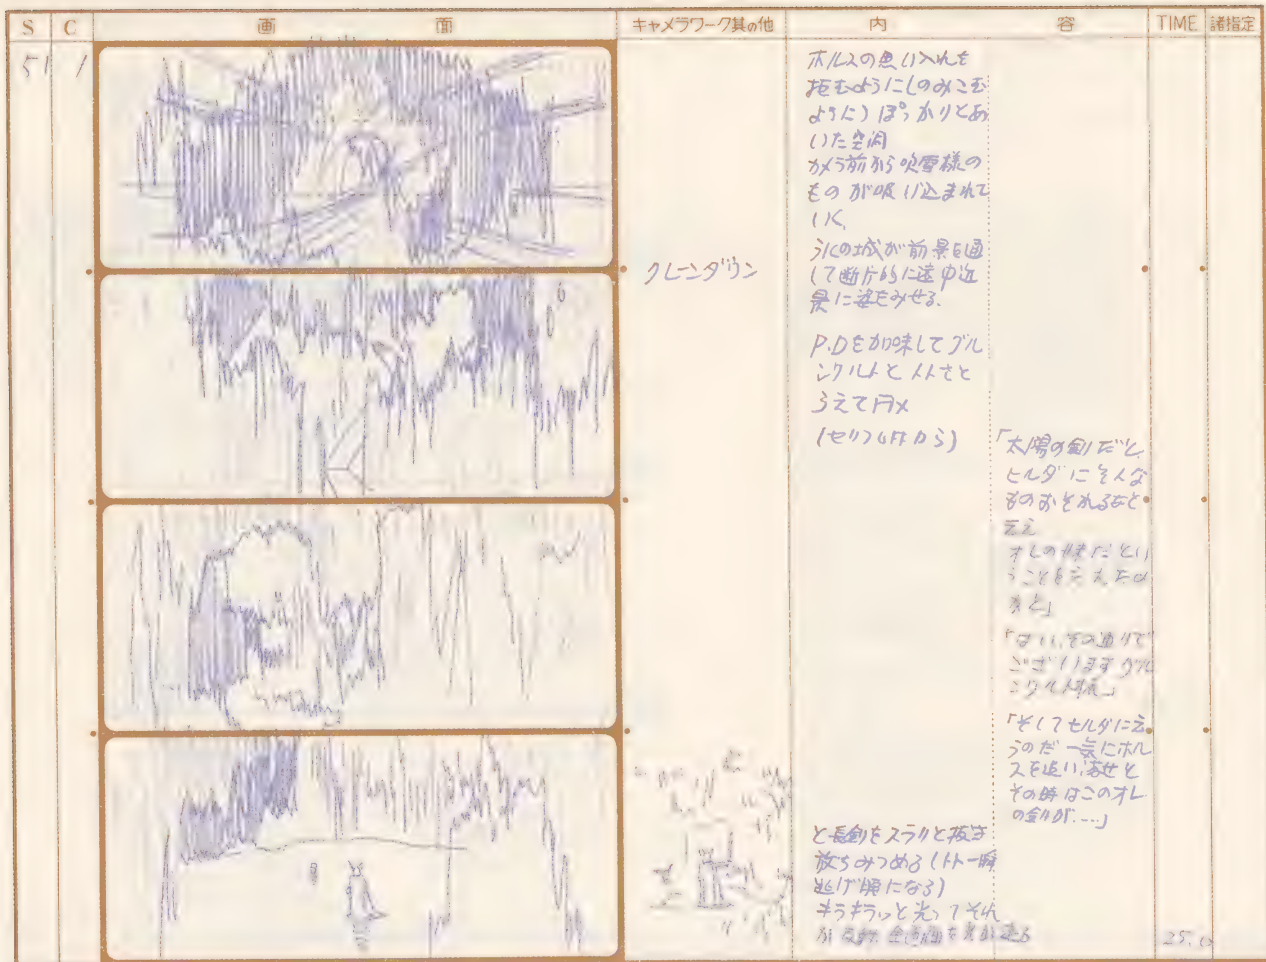 S C 画面 キャメラワーク其の他 内容 TIME 諸指定
51 1
ホルスの思い入れを
拒むように(のみこむ
ように)ぽっかりとあ
いた空洞
カメラ前から吹雪様の
ものが吸い込まれて
いく
氷の城が前景を通
して断片的に遠中近
景に姿をみせる.
クレーンダウン
P.Dを加味してグル
ンワルドと
(セリフ
「太陽の剣だと
ヒルダにそんな
ものおそれるなと
云え
オレの妹だとい
うことを
「はい,その通りで
ございますグル
ンワルド様」
「そしてヒルダに云
うのだ 一気にホル
スを追い落せと
その時はこのオレ
の剣が....」
と長剣をスラリと抜き
放ちみつめる(トト一瞬
逃げ腰になる)
キラキラッと光ってそれ
が反射 全画面を
25.0